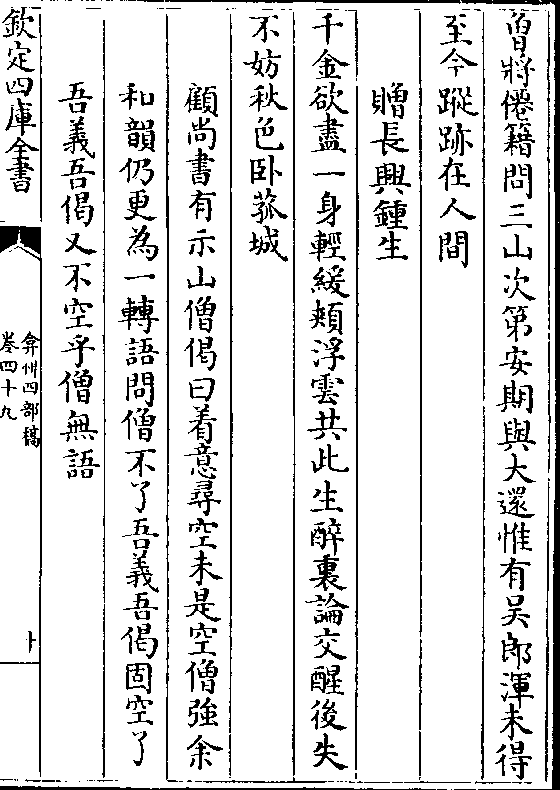 曾將僊籍問三山次第安期與大還惟有吴郎渾未得
至今蹤跡在人間
贈長興鍾生
千金欲盡一身輕緩頰浮雲共此生醉裏論交醒後失
不妨秋色卧菰城
顧尚書有示山僧偈曰着意尋空未是空僧強余
和韻仍更為一轉語問僧不了吾義吾偈固空了
吾義吾偈又不空乎僧無語
欽定四庫全書
弇州四部稿
卷四十九
十